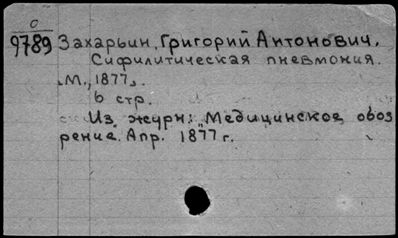 0
9789
Захарьин, Григорий Антонович.
Сифилитическая пневмония.
М., 1877.
6 стр.
Из журн: "Медицинское обоз
рение". Апр. 1877 г.